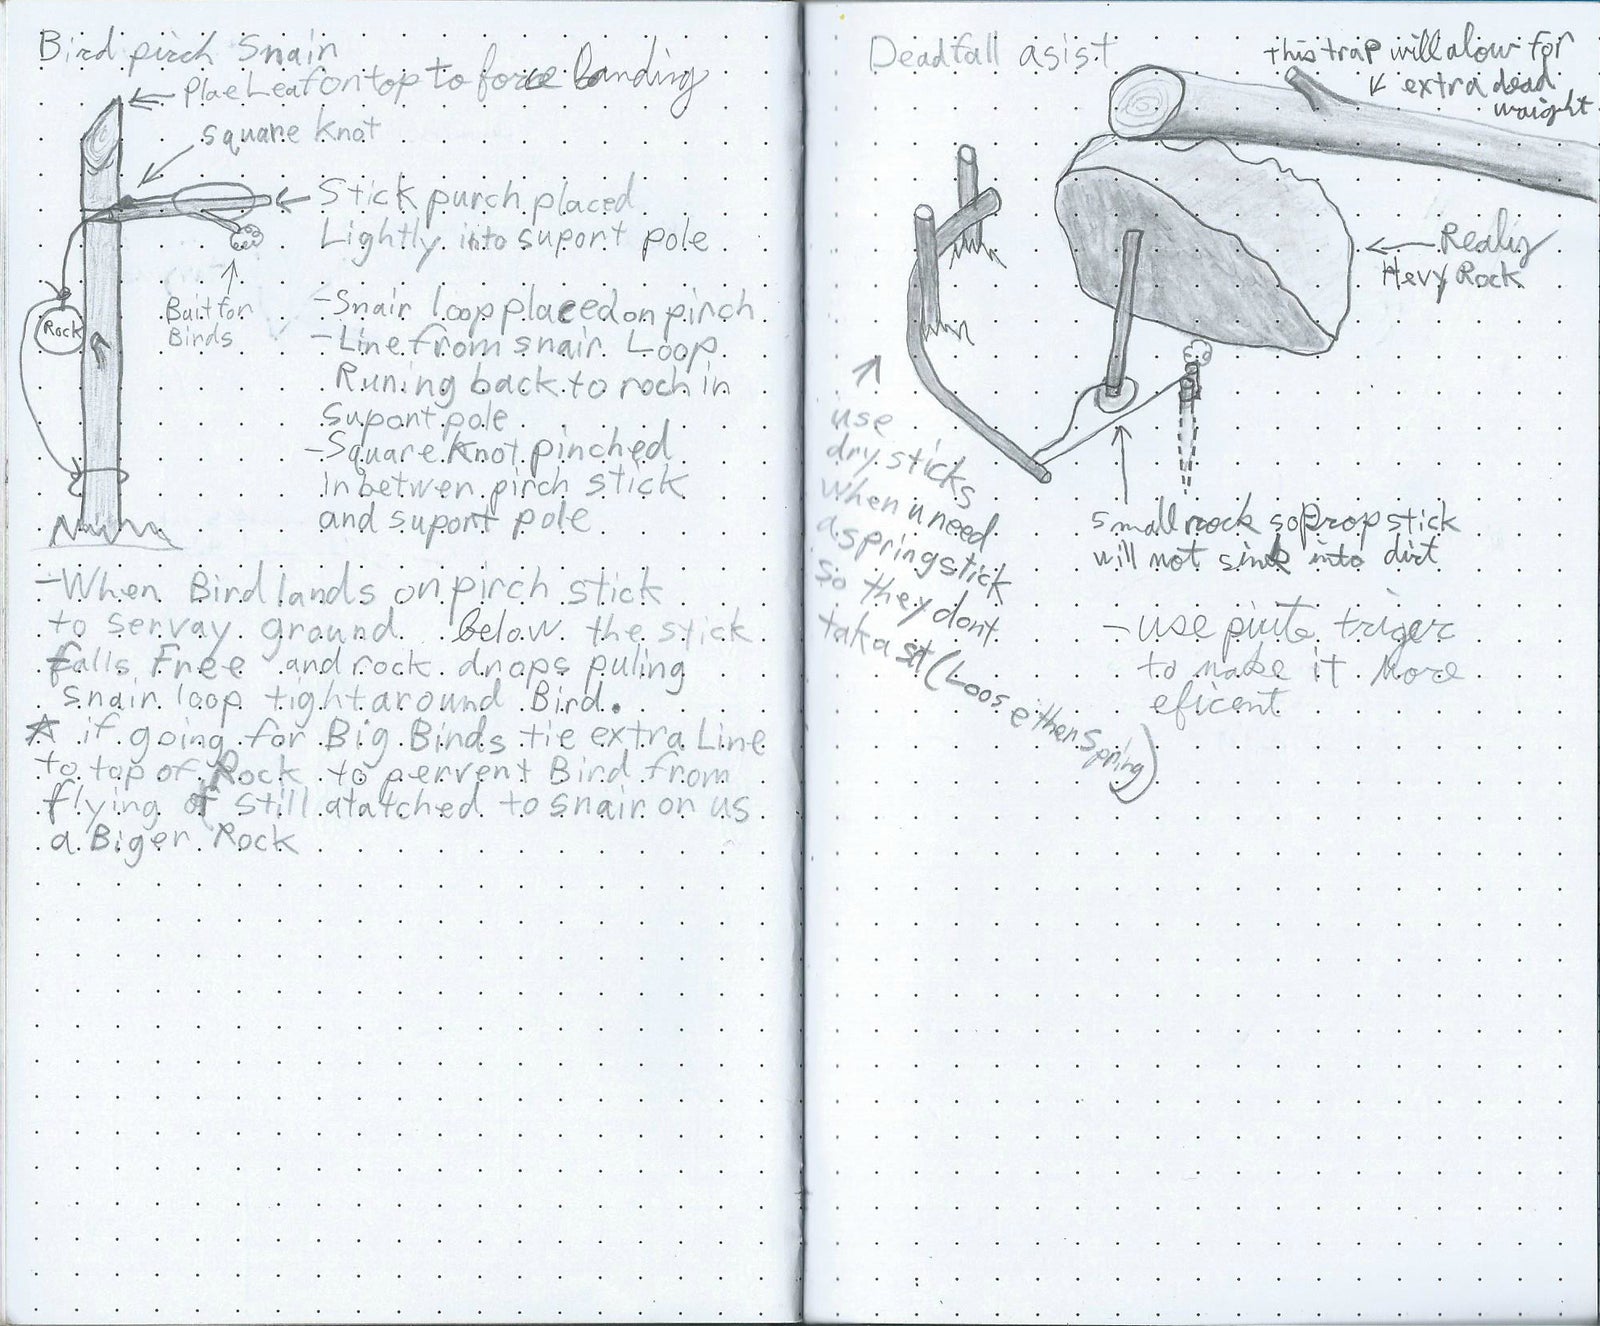 Bird pirch Snair
Plae Leaf on top to force landing
square knot
Stick purch placed
Lightly into suport pole
Bait for
Birds
Rock
-Snair loop placed on pirch
-Line from snair Loop
Runing back to roch in
suport pole
-Square Knot pinched
in betwen pirch stick
and suport pole
-When Bird lands on pirch stick
to servay ground below the stick
falls Free and rock drops puling
snair loop tight around Bird.
☆ if going for Big Birds tie extra Line
to top of Rock to pervent Bird from
flying of still atatched to snair or us
a Biger Rock
Deadfall asist
this trap will alow for
extra dead
waight
Realiy
Hevy Rock
use
dry sticks
when u need
a spring stick
so they dont
take a set (Loos either spring)
small rock so Prop stick
will not sink into dirt
-use piute triger
to make it more
eficent